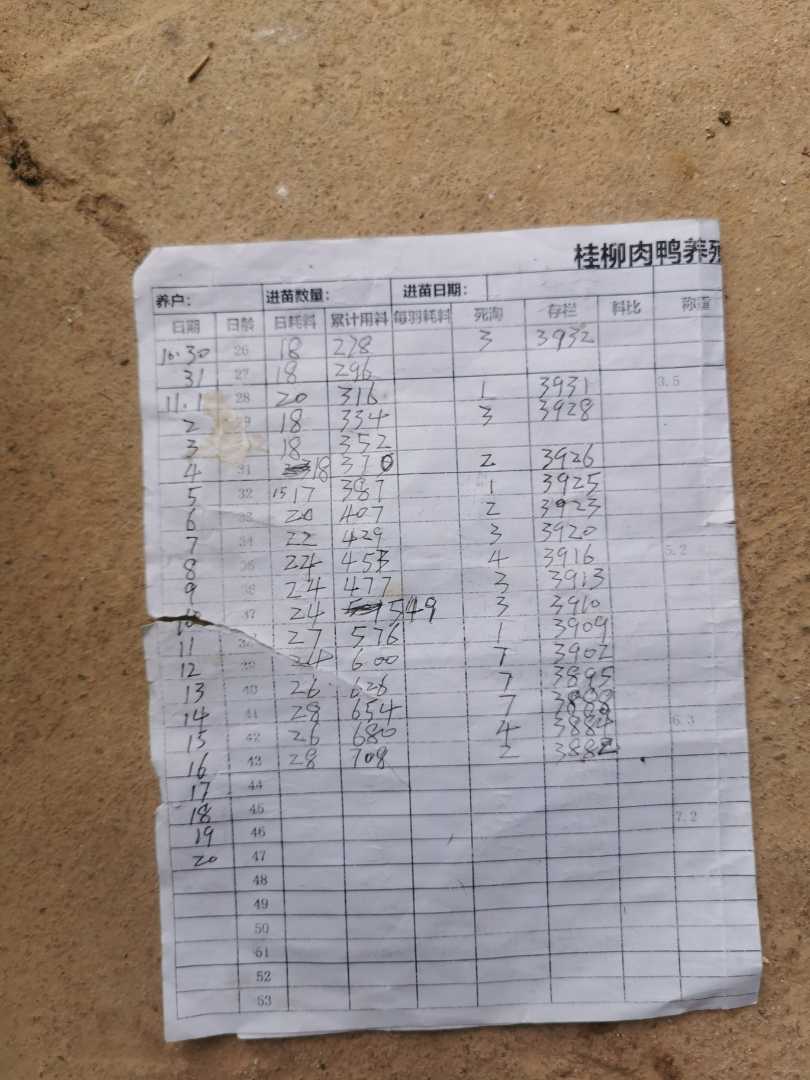 桂柳肉鸭养殖
养户： 进苗数量： 进苗日期：
日期 日龄 日耗料 累计用料 每羽耗料 死淘 存栏 料比 称重
10.30 26 18 278 3 3932
31 27 18 296
11.1 28 20 316 1 3931 3.5
2 29 18 334 3 3928
3 18 352
4 31 18 370 2 3926
5 32 15 17 387 1 3925
6 33 20 407 2 3923
7 34 22 429 3 3920
8 35 24 453 4 3916 5.2
9 36 24 477 3 3913
10 37 24 549 3 3910
11 38 27 576 1 3909
12 39 24 600 7 3902
13 40 26 626 7 3895
14 41 28 654 7 3888
15 42 26 680 4 3884 6.3
16 43 28 708 2 3882
17 44
18 45
19 46 7.2
20 47
48
49
50
51
52
53